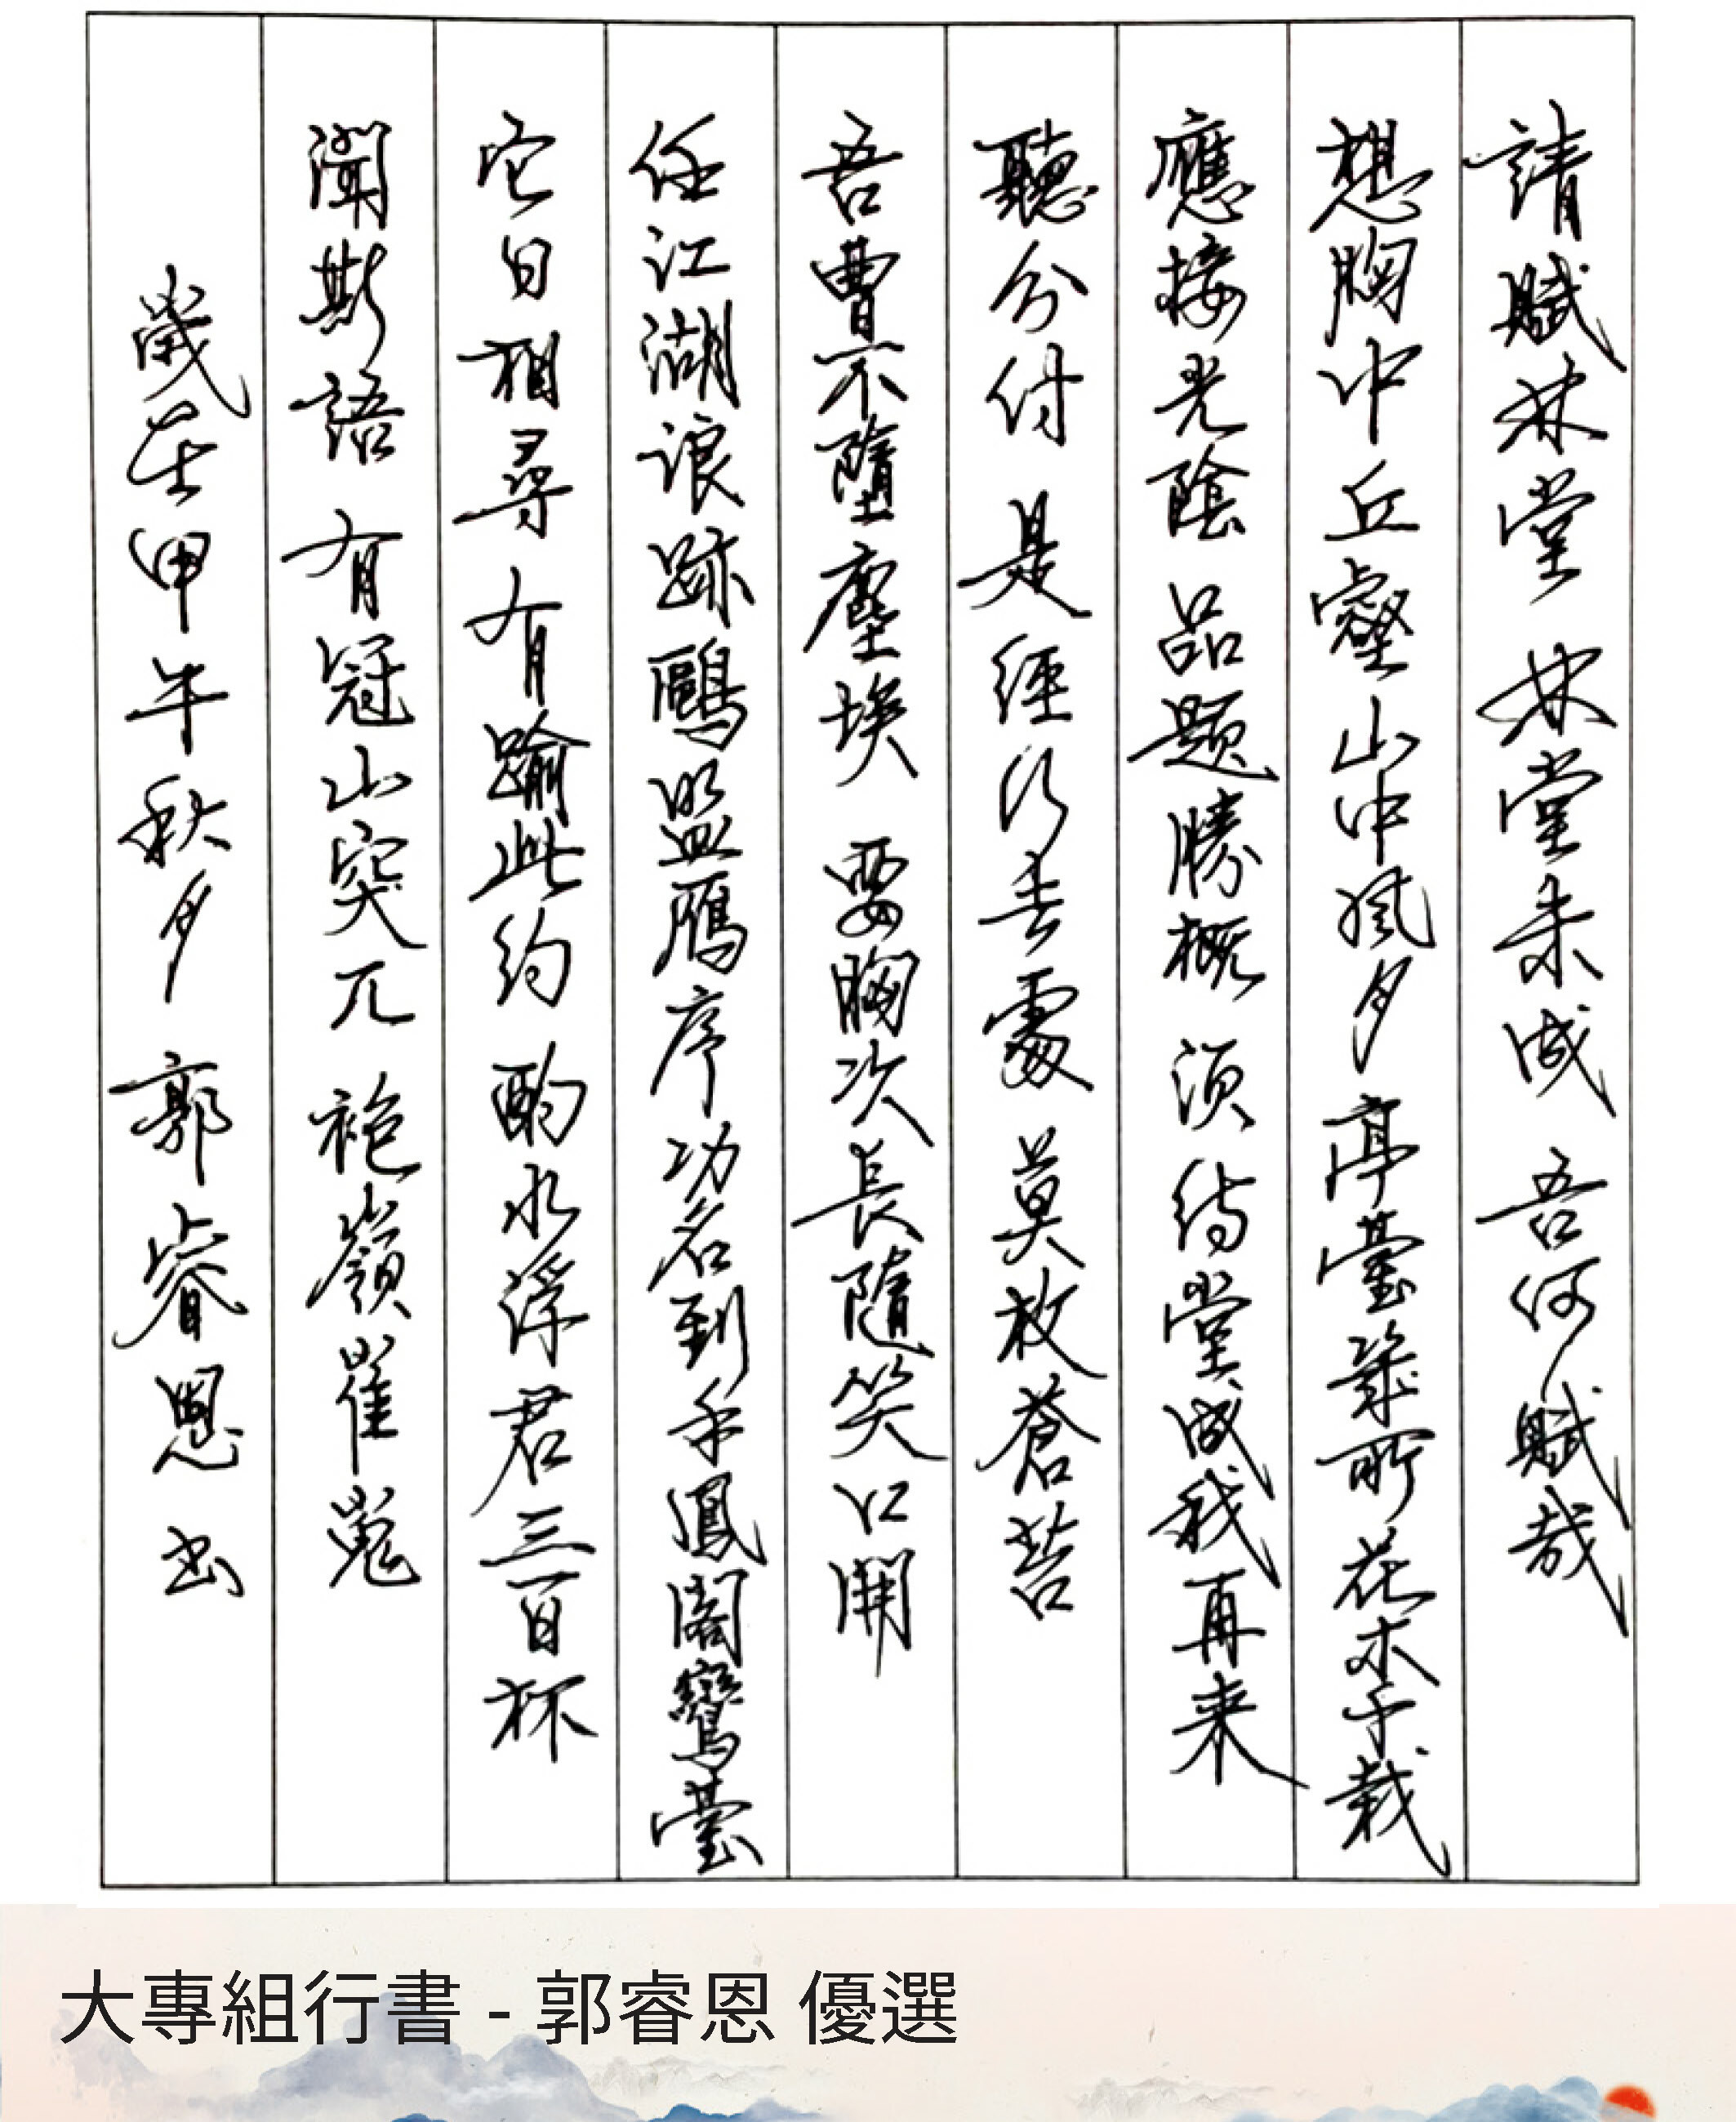 請賦林堂 林堂未成 吾何賦哉
想胸中丘壑山中風月亭臺築所花木手栽
應接光陰 品題勝概 須待堂成我再来
聽分付 是經行去處 莫放蒼苔
吾曹不墮塵埃 要胸次長隨笑口開
任江湖浪跡鷗盟雁序功名到手鳳閣鸞臺
它日相尋 有踰此約 酌水浮君三百杯
聞斯語 有冠山突兀 袍嶺崔嵬
歲在甲午秋月 郭睿恩 书
大專組行書 - 郭睿恩 優選